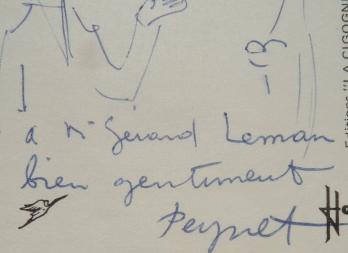 à Mr Gérard Leman
bien gentiment
Peynet
Editions "LA CIGOGNE